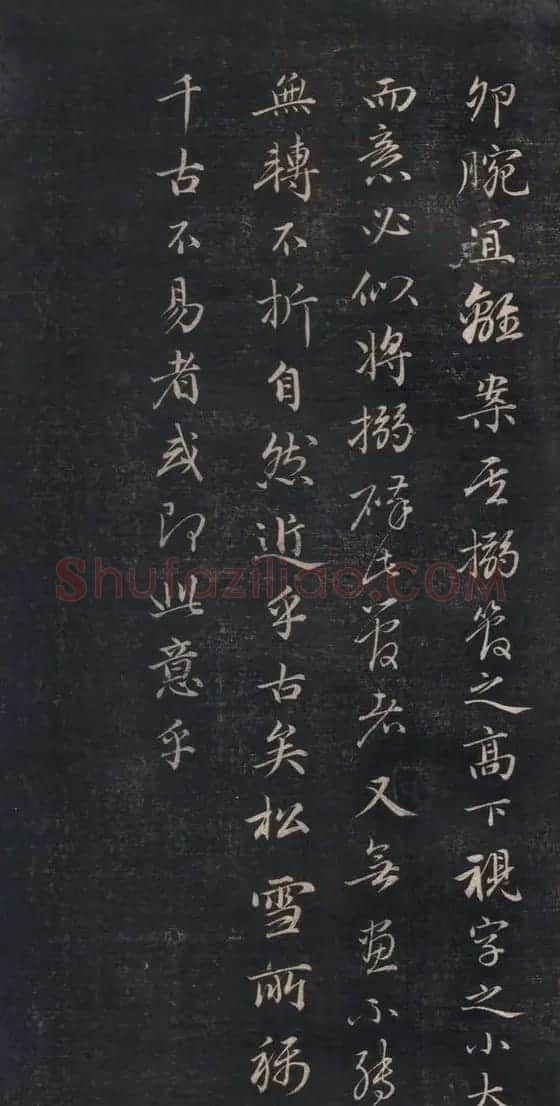 腕宜離案其搦管之高下視字之小大
而意必似將搦碎其管者又無畫不轉
無轉不折自然近乎古矣松雪所稱
千古不易者或即此意乎
Shufaziliao.COM